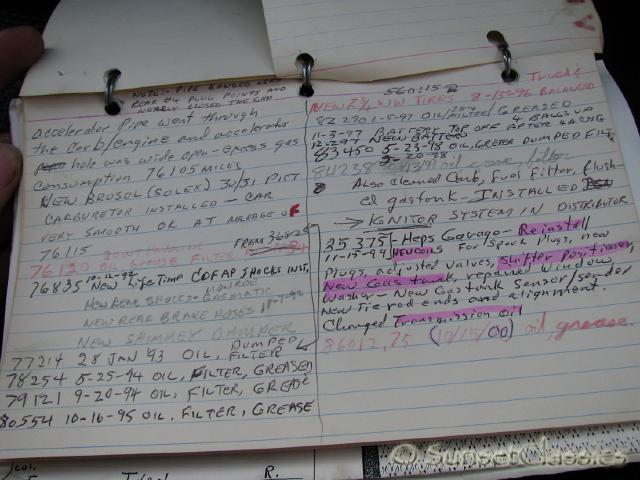 NOTE:- PIPE BANGED
REAR #4 PLUG POINTS AND
NEARLY CLOSED THE GAP
accelerator pipe went through
the carb/engine and accelerator
hole was wide open - excess gas
consumption 76105 MILES
NEW BROSOL (SOLEX) 30/31 PICT
CARBURETOR INSTALLED - CAR
VERY SMOOTH OR AT MILEAGE OF
76115
76120 OIL Grease FILTER
76835 New LifeTime COFAP SHOCKS INST,
MONROE
NEW REAR SHOCKS - GASMATIC
NEW REAR BRAKE HOSES
NEW SHIMMEY DAMPER
77214 28 JAN 93 OIL, DUMPED FILTER
78254 5-25-94 OIL, FILTER, GREASED
79121 9-20-94 OIL, FILTER, GREASE
80554 10-16-95 OIL, FILTER, GREASE
560:15
NEW WW TIRES 8-15-96 BALANCED
Trued &
82290 1-5-97 OIL/FILTER/GREASED
11-3-97 BATTERY TOP OFF AFTER
12-2-97 NEW BATTERY
83450 5-23-98 OIL, GREASE DUMPED
84238 oil grease, filter
Also cleaned Carb, Fuel Filter, flush-
ed gastank - INSTALLED
→ IGNITOR SYSTEM IN DISTRIBUTOR
25375 - Heps Garage - Reinstall
11-15-99 HELICOILS For Spark Plugs, new
Plugs, adjusted Valves, Shifter Positioned,
New Gas tank, repaired Window
Washer - New Gastank Sensor/sender
New Tie rod ends and alignment.
Changed Transmission oil
86012.75 (10/15/00) oil grease.
© Sunset Classics